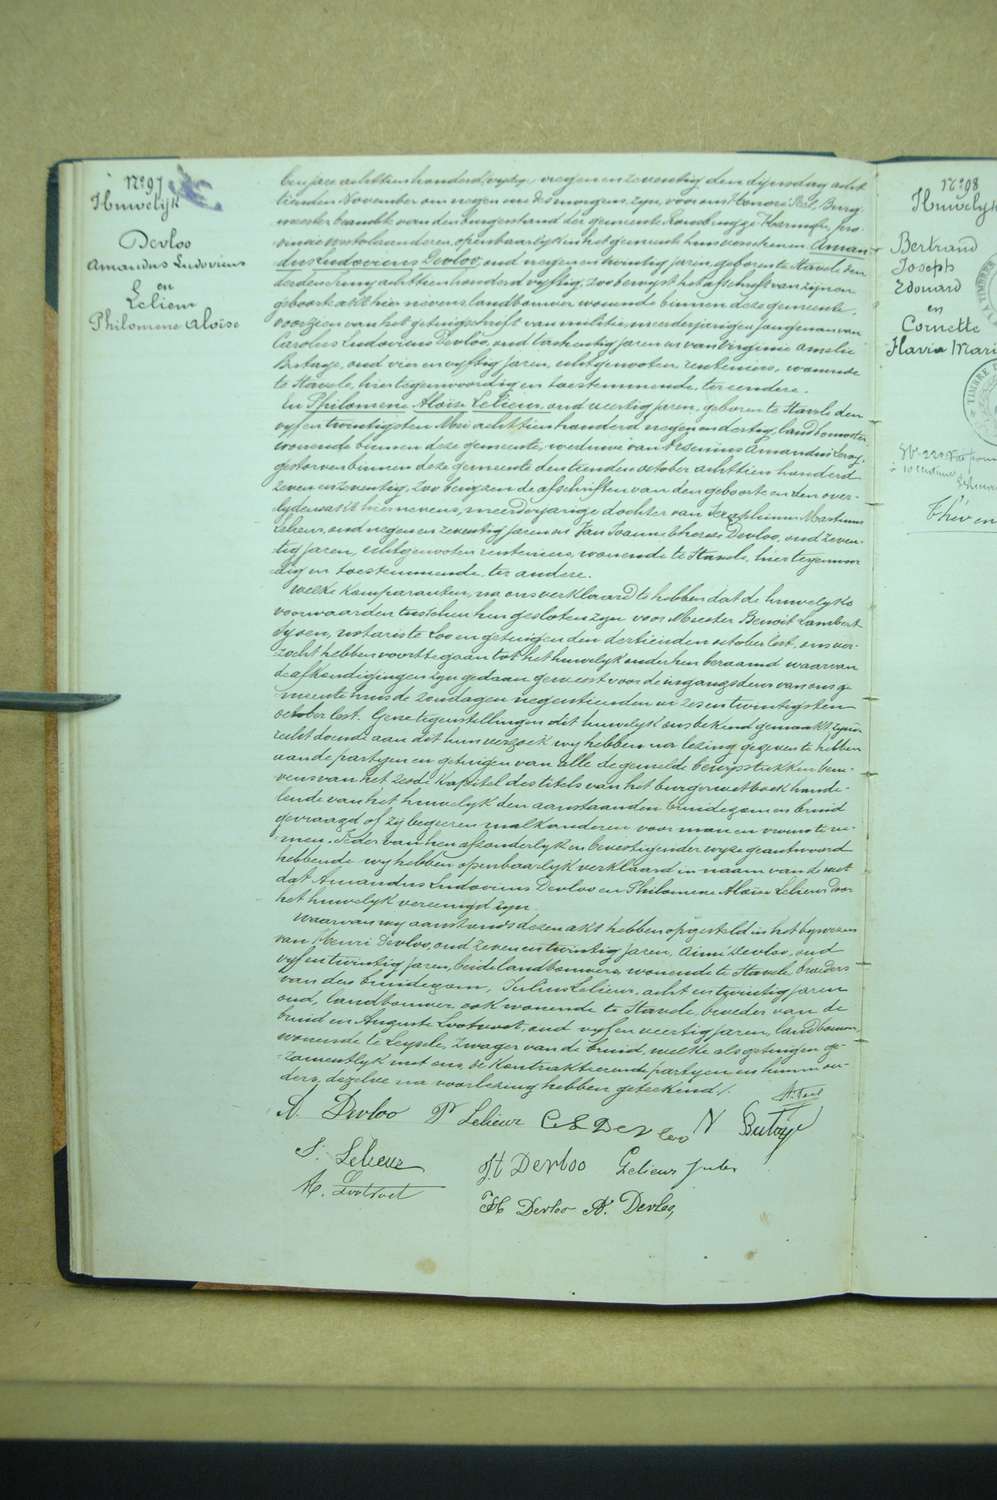 N° 97
Huwelijk
Devloo
Amandus Ludovicus
en
Lelieur
Philomene Aloïse
Ten jare achttienhonderd negen en zeventig den dijnsdag acht
tienden November om negen ure des morgens, zijn voor ons Honoré Bael, Burg
meester beambte van den burgerstand der gemeente Rousbrugge Haringhe, pro
vincie Westvlaanderen, openbaarlyk in het gemeente huis verschenen Aman-
dus Ludovicus Devloo, oud negen en twintig jaren, geboren te Stavele den
derden Juny achttienhonderd vyftig, zoo bewyst het afschrift van zijnen
geboorte akt hier nevens, landbouwer, wonende binnen deze gemeente,
voorzien van het getuigschrift van militie, meerderjarigen jongman van
Carolus Ludovicus Devloo, oud tachentig jaren en van Virginie Amelie
Butaye, oud vier en vyftig jaren, echtgenooten, renteniers, wonende
te Stavele, hier tegenwoordig en toestemmende, ter eendere.
En Philomene Aloïse Lelieur, oud veertig jaren, geboren te Stavele den
vyf en twintigsten Mei achttien honderd negen en dertig, landbouwster
wonende binnen deze gemeente, weduwe van Desiderius Amandus Leroy,
gestorven binnen deze gemeente den tienden october achttien honderd
zeven en zeventig, zoo bewyzen de afschriften van den geboorte en den over-
lydensakt hier nevens, meerderjarige dochter van Seraphinus Martinus
Lelieur, oud negen en zeventig jaren en Van Joanne Therese Devloo, oud zeven-
tig jaren, echtgenooten renteniers, wonende te Stavele, hier tegenwoor
dig en toestemmende, ter andere.
Welke komparanten, na ons verklaard te hebben dat de huwelyks
voorwaarden tusschen hen gesloten zyn voor Meester Benoit Lambert
Tysen, notaris te Loo en getuigen den dertienden october lest, ons ver-
zocht hebben voort te gaan tot het huwelyk onder hen beraamd waarvan
de afkondigingen zyn gedaan geweest voor de ingangsdeur van ons ge
meente huis de zondagen negentienden en zes en twintigsten
october lest. Gene tegenstellingen dit huwelyk ons bekend gemaakt zynde
recht doende aan dit hun verzoek wy hebben na lezing gegeven te hebben
aan de partyen en getuigen van alle de gemelde bewysstukken bene-
vens van het zesde kapittel des titels van het burgerwetboek hande-
lende van het huwelyk den aanstaanden bruidegom en bruid
gevraagd of zy begeeren malkanderen voor man en vrouw te ne-
men. Ieder van hen afzonderlyk en bevestigender wyze geantwoord
hebbende wy hebben openbaarlyk verklaard in naam van de wet
dat Amandus Ludovicus Devloo en Philomene Aloïse Lelieur door
het huwelyk vereenigd zyn.
Waarvan wy aanstonds dezen akt hebben opgesteld in het bywezen
van Henri Devloo, oud zeven en twintig jaren, Aimé Devloo, oud
vyf en twintig jaren, beide landbouwers, wonende te Stavele, broeders
van den bruidegom, Julius Lelieur, acht en twintig jaren
oud, landbouwer, ook wonende te Stavele, broeder van de
bruid en Auguste Lootvoet, oud vyf en veertig jaren, landbouwer,
wonende te Leysele, zwager van de bruid, welke als getuigen ge-
zamentlyk met ons, de kontrakteerende partyen en hunne ou-
ders, dezelve na voorlezing hebben geteekend.
A. Devloo Ph Lelieur C L Devloo V Butaye
S. Lelieur H Devloo Lelieur Jules
A. Lootvoet H Devloo A. Devloo
N° 98
Huwelyk
Bertrand
Joseph
Edouard
en
Cornette
Flavie Mari
TIMBRE